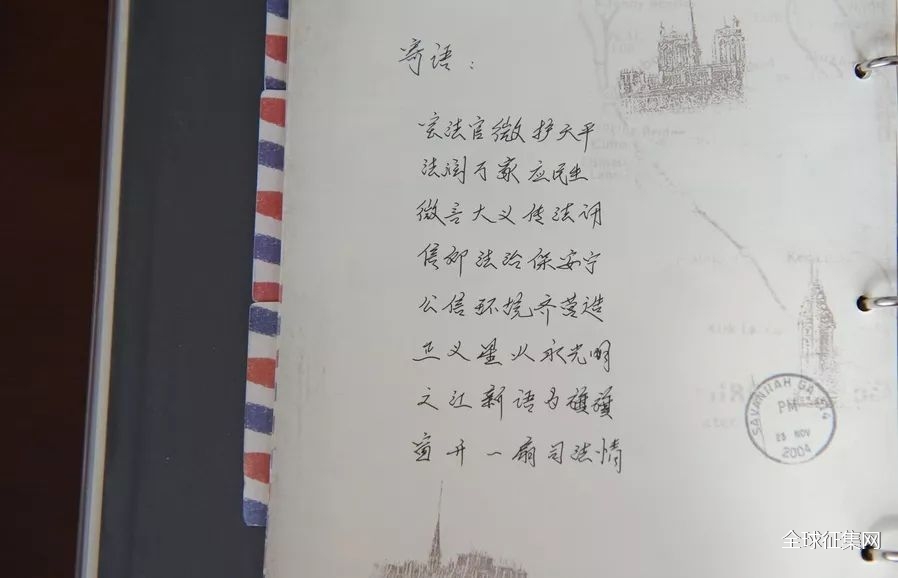 寄语：
法官微护天平
法润万家应民生
微言大义传法讯
信仰法治保安宁
公信环境齐营造
正义星火永光明
之江新语为
窗开一扇司法情
SAVANNAH GA 314
PM
23 NOV
2004
全球征集网